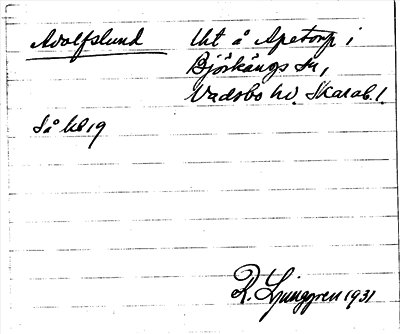 Adolfslund
Uht å Apetorp i
Björkängs sn,
Vadsbo hd. Skarab. l.
Så kb 19
R. Ljunggren 1931